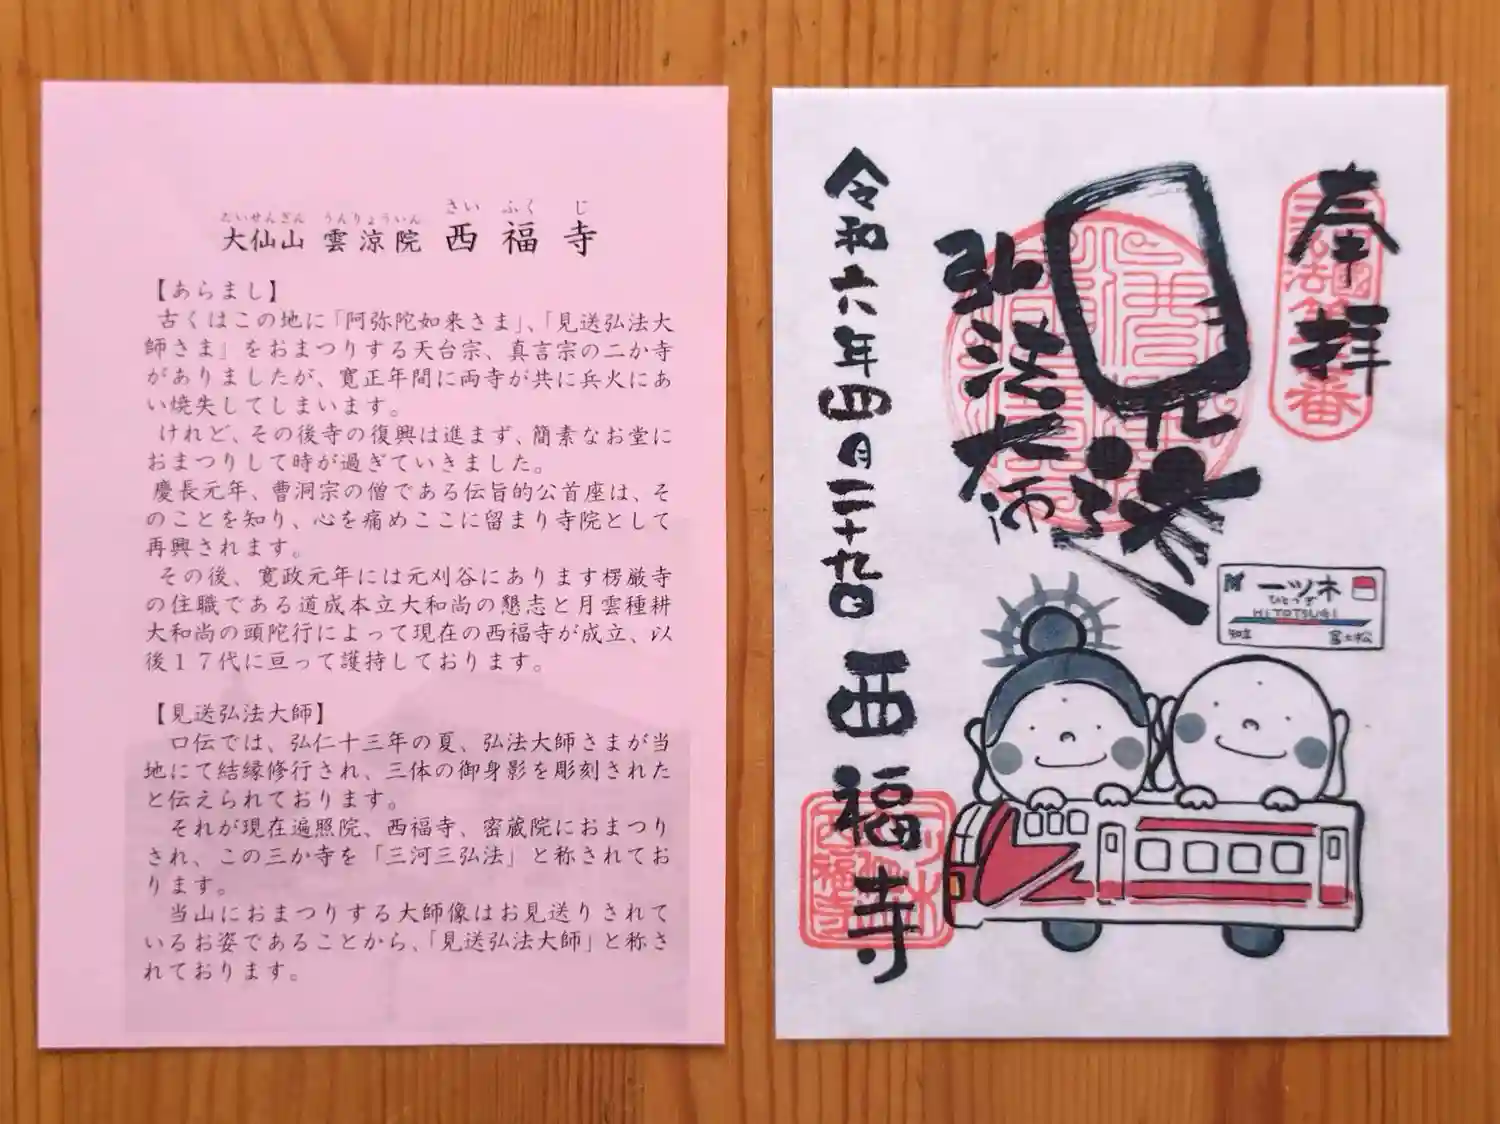 たいせんざん うんりょういん さい ふく じ
大仙山 雲涼院 西福寺
【あらまし】
古くはこの地に「阿弥陀如来さま」、「見送弘法大
師さま」をおまつりする天台宗、真言宗の二か寺
がありましたが、寛正年間に両寺が共に兵火にあ
い焼失してしまいます。
けれど、その後寺の復興は進まず、簡素なお堂に
おまつりして時が過ぎていきました。
慶長元年、曹洞宗の僧である伝旨的公首座は、そ
のことを知り、心を痛めここに留まり寺院として
再興されます。
その後、寛政元年には元刈谷にあります楞厳寺
の住職である道成本立大和尚の懇志と月雲種耕
大和尚の頭陀行によって現在の西福寺が成立、以
後１７代に亘って護持しております。
【見送弘法大師】
口伝では、弘仁十三年の夏、弘法大師さまが当
地にて結縁修行され、三体の御身影を彫刻された
と伝えられております。
それが現在遍照院、西福寺、密蔵院におまつり
され、この三か寺を「三河三弘法」と称されてお
ります。
当山におまつりする大師像はお見送りされて
いるお姿であることから、「見送弘法大師」と称さ
れております。
奉拝
見送
弘法大師
令和六年四月二十九日 西福寺
一ツ木
ひとつぎ
HITOTSUGI
知立 富士松